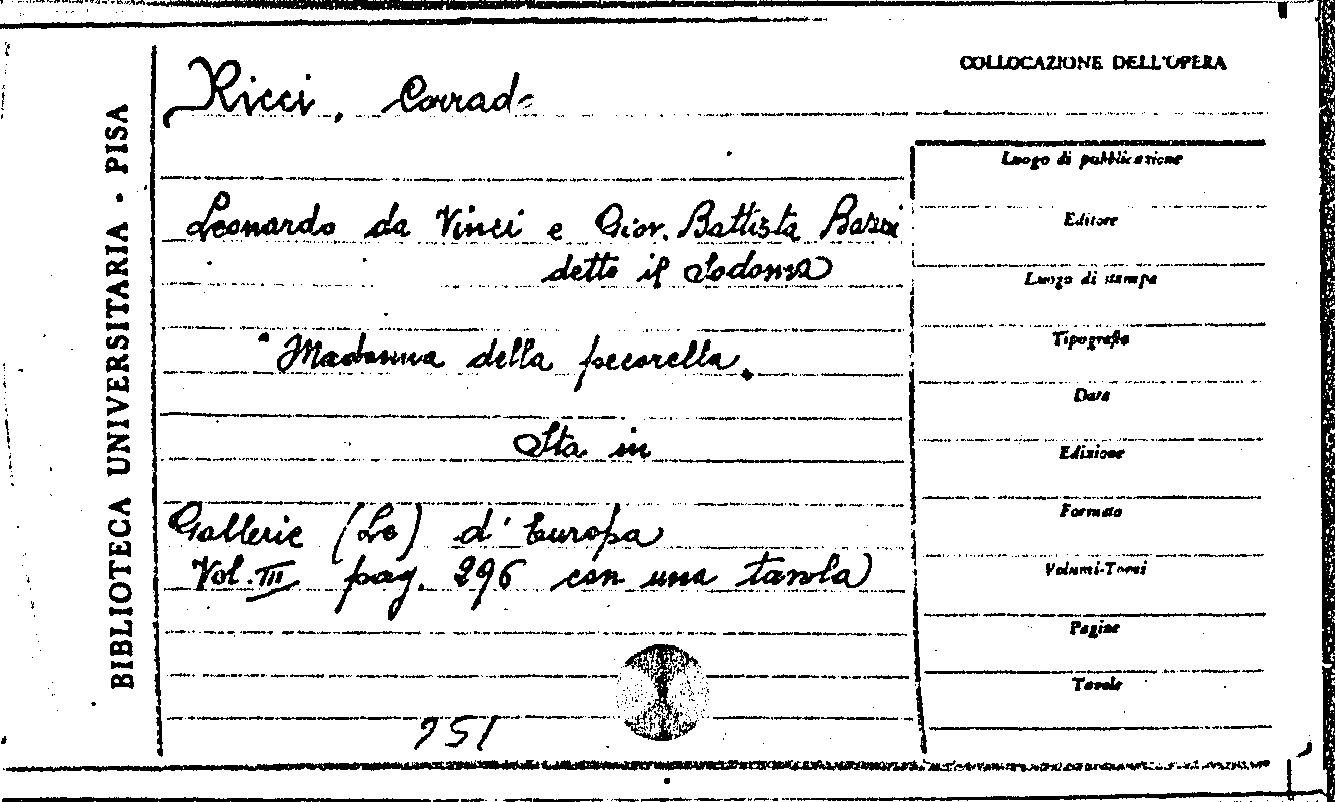 BIBLIOTECA UNIVERSITARIA - PISA
Ricci, Corrado
Leonardo da Vinci e Giov. Battista Bazzi
detto il Sodoma
"Madonna della pecorella"
Sta in
Gallerie (Le) d'Europa
Vol. III pag. 296 con una tavola
951
COLLOCAZIONE DELL'OPERA
Luogo di pubblicazione
Editore
Luogo di stampa
Tipografia
Data
Edizione
Formato
Volumi-Tomi
Pagine
Tavole